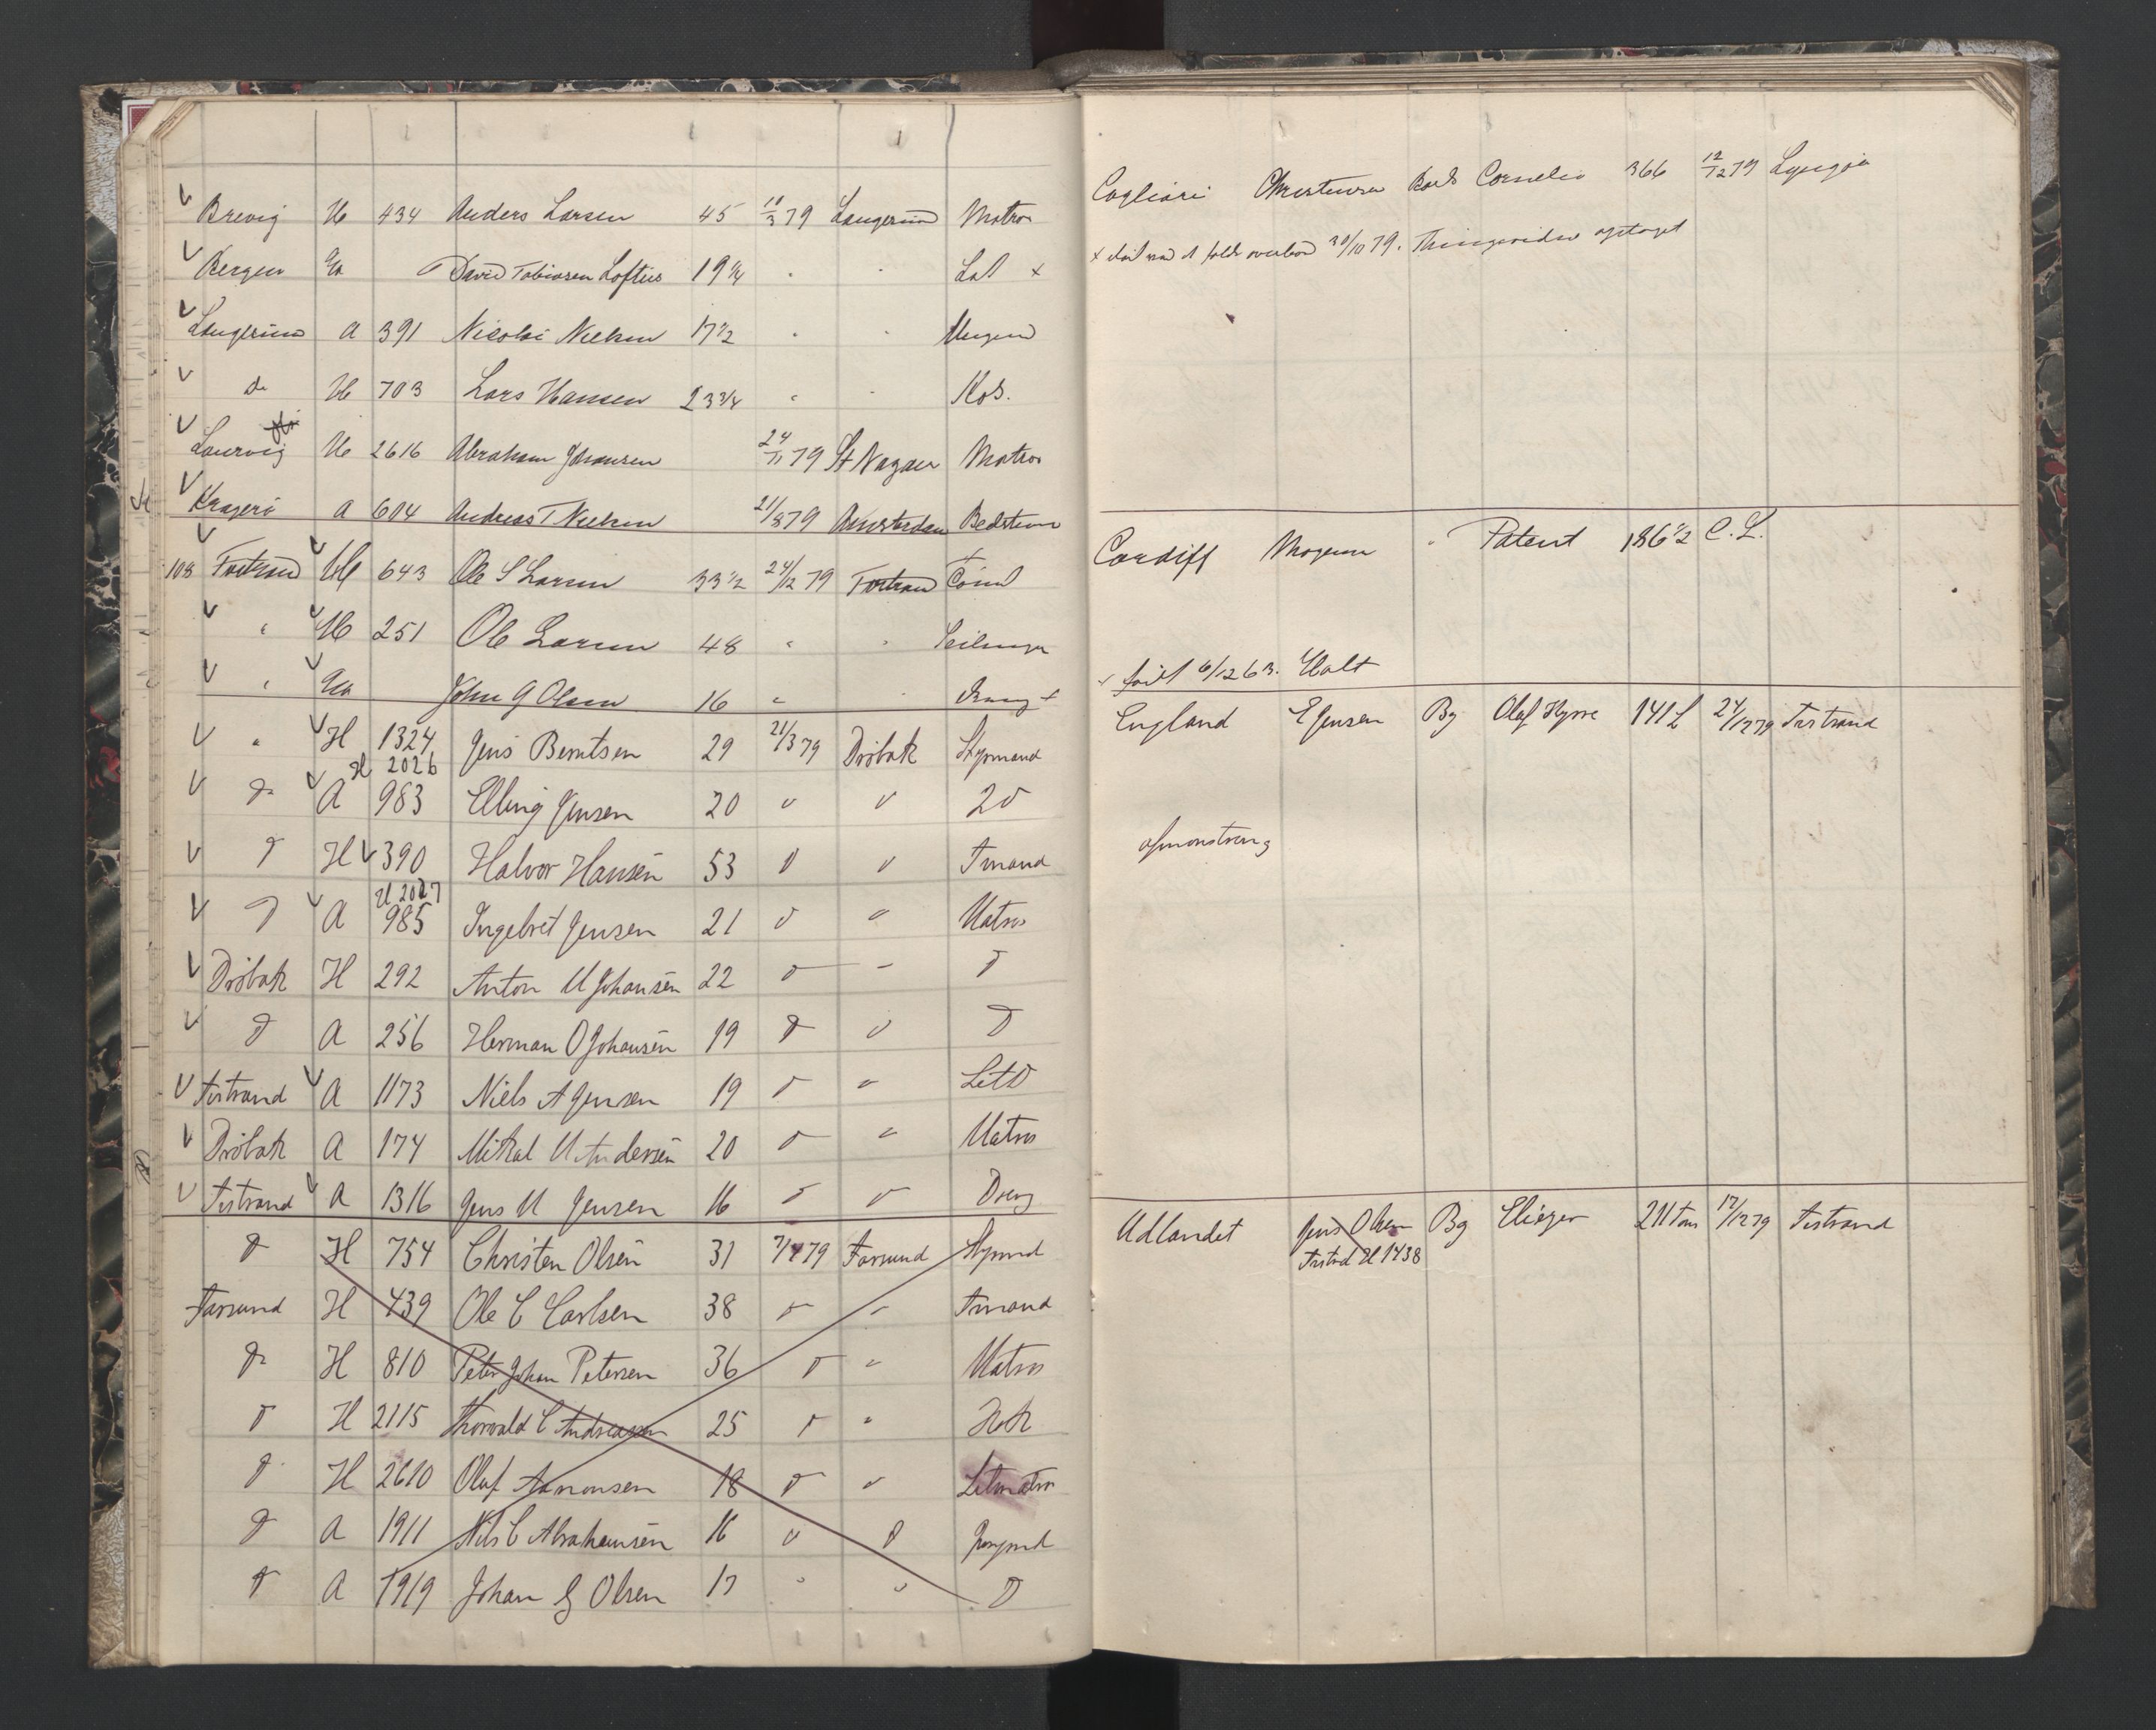 Brevig H 434 Anders Larsen 45 10/3 79 Langesund Matros
Bergen Ea David Tobiasen Lofthus 19 1/4 " " Let x
Langesund A 391 Nicolai Nielsen 17 1/2 " "
do H 703 Lars Hansen 23 3/4 " " Kok.
Laurvig H 2616 Abraham Johansen 24/11 79 St Nazaire Matros
Kragerö A 604 Andreas T Nielsen 21/8 79 Amsterdam Bedstem
108 H 643 Ole S Larsen 33 1/2 24/12 79 Tömd
" H 251 Ole Larsen 48 " "
" Ea John G Olsen 16 " " Dreng +
" H 1324 Jens Berntsen 29 21/3 79 Dröbak Styrmand
H 2026
do A 983 Elling Jensen 20 " " 2 do
do H 390 Halvor Hansen 53 do " Tmand
H 2027
do A 985 Ingebret Jensen 21 do " Matros
Dröbak H 292 Anton M Johansen 22 do " do
do A 256 Herman O Johansen 19 do " do
Tvstrand A 1173 Niels A Jensen 19 do " Let do
Dröbak A 174 Mikal M Andersen 20 do " Matros
Tvstrand A 1316 Jens M Jensen 16 do " Dreng
do H 754 Christen Olsen 31 7/4 79 Farsund Styrmd
Farsund H 439 Ole C Carlsen 38 do " Tmand
do H 810 Peter Johan Petersen 36 do " Matros
do H 2115 Thorvald C Andreasen 25 do " Kok
do H 2610 Olaf Aanonsen 18 do " Letmatros
do A 1911 Nils C Abrahamsen 16 " do Jungmd
do A 1919 Johan G Olsen 17 " " do
Cagliari Christensen Bark Cornelia 366 12/12 79 Lyngör
x overbord 30/10 79. optaget
Cardiff Mogensen " Patent 186 1/2 C.L.
+ födt 6/12 63. Holt
England E Jensen Bg Olaf Kyrre 141 L 24/12 79 Tvstrand
afmönstring
Udlandet Jens Olsen Bg Eliezer 211 Tons 17/12 79 Tvstrand
Tvstrd H 1438